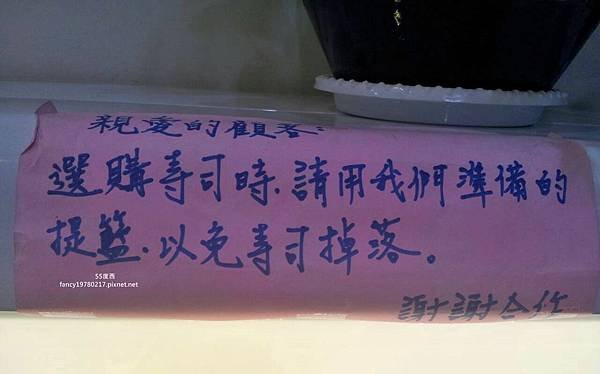 親愛的顧客:
選購壽司時、請用我們準備的
提籃、以免壽司掉落。
55度西
fancy19780217.pixnet.net
謝謝合作